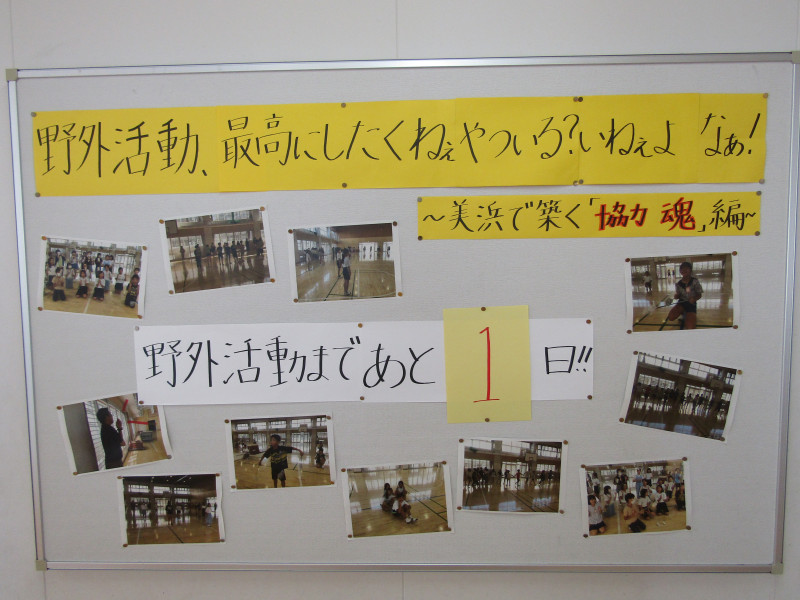 野外活動、最高にしたくねぇやついる?いねぇよ なぁ!
~美浜で築く「協力 魂」編~
野外活動まであと 1 日!!